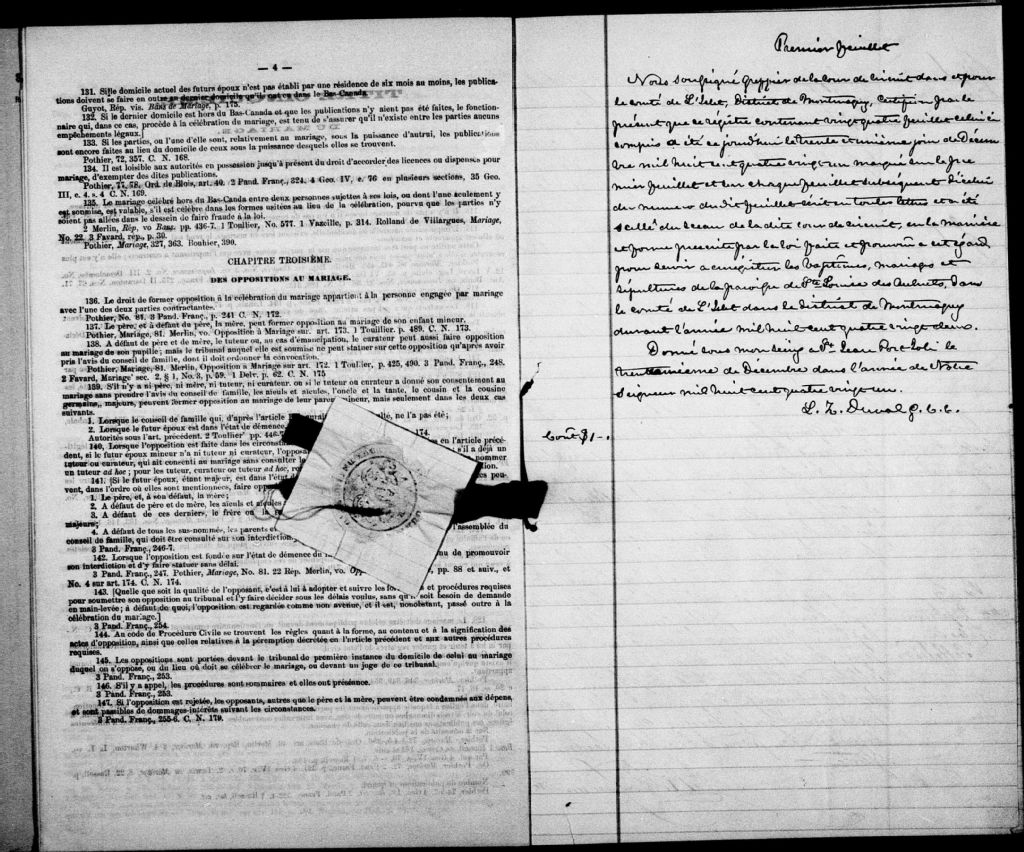 — 4 —
131. Si le domicile actuel des futurs époux n'est pas établi par une résidence de six mois au moins, les publica-
tions doivent se faire en outre au dernier domicile qu'ils ont eu dans le Bas-Canada.
Guyot, Rép. vis. Bans de Mariage, p. 175.
132. Si le dernier domicile est hors du Bas-Canada et que les publications n'y aient pas été faites, le fonction-
naire qui, dans ce cas, procède à la célébration du mariage, est tenu de s'assurer qu'il n'existe entre les parties aucuns
empêchements légaux.]
133. Si les parties, ou l'une d'elle sont, relativement au mariage, sous la puissance d'autrui, les publications
sont encore faites au lieu du domicile de ceux sous la puissance desquels elles se trouvent.
Pothier, 72, 357. C. N. 168.
134. Il est loisible aux autorités en possession jusqu'à présent du droit d'accorder des licences ou dispenses pour
mariage, d'exempter des dites publications.
Pothier, 77, 78. Ord. de Blois, art. 40. 2 Pand. Franç., 324. 4 Geo. IV, c. 76 en plusieurs sections, 35 Geo.
III, c. 4. s. 4 C. N. 169.
135. Le mariage célébré hors du Bas-Canda entre deux personnes sujettes à ses lois, ou dont l'une seulement y
est soumise, est valable, s'il est célébré dans les formes usitées au lieu de la célébration, pourvu que les parties n'y
soient pas allées dans le dessein de faire fraude à la loi.
2 Merlin, Rép. vo Bans. pp. 436-7. 1 Toulier, No. 577. 1 Vazille, p. 314. Rolland de Villargues, Mariage,
No. 22. 3 Favard, rep., p. 30.
Pothier, Mariage, 327, 363. Bouhier, 390.
CHAPITRE TROISIÈME.
DES OPPOSITIONS AU MARIAGE.
136. Le droit de former opposition à la célébration du mariage appartient à la personne engagée par mariage
avec l'une des deux parties contractantes.
Pothier, No. 81. 3 Pand. Franç., p. 241 C. N. 172.
137. Le père, et à défaut du père, la mère, peut former opposition au mariage de son enfant mineur.
Pothier, Mariage, 81. Merlin, vo. Opposition à Mariage sur. art. 173. 1 Touillier. p. 489. C. N. 173.
138. A défaut de père et de mère, le tuteur ou, au cas d'émancipation, le curateur peut aussi faire opposition
au mariage de son pupille; mais le tribunal auquel elle est soumise ne peut statuer sur cette opposition qu'après avoir
pris l'avis du conseil de famille, dont il doit ordonner la convocation.
Pothier, Mariage, 81. Merlin, Opposition à Mariage sur art. 172. 1 Toulier, p. 425, 490. 3 Pand. Franç., 248.
2 Favard, Mariage sec. 2. § 1, No. 3, p. 59. 1 Delv. p. 62. C. N. 175
139. S'il n'y a ni père, ni mère, ni tuteur, ni curateur. ou si le tuteur ou curateur a donné son consentement au
mariage sans prendre l'avis du conseil de famille, les aïeuls et aïeules, l'oncle et la tante, le cousin et la cousine
germains, majeurs, peuvent former opposition au mariage de leur parent mineur, mais seulement dans les deux cas
suivants.
1. Lorsque le conseil de famille qui, d'après l'article lté, ne l'a pas été;
2. Lorsque le futur époux est dans l'état de démence.
Autorités sous l'art. précédent. 2 Toullier pp. 446- 174.
140, Lorsque l'opposition est faite dans les circonstan en l'article précé-
dent, si le futur époux mineur n'a ni tuteur ni curateur, l'oppos s'il a déjà un
tuteur ou curateur, qui ait consenti au mariage sans consulter le nommer
un tuteur ad hoc; pour les tuteur, curateur ou tuteur ad hoc, re tion.
141. [Si le futur époux, étant majeur, est dans l'état d es peu-
vent, dans l'ordre où elles sont mentionnées, faire oppos
1. Le père, et, à son défaut, la mère;
2. A défaut de père et de mère, les aïeuls et aïeules
3. A défaut de ces derniers, le frère ou la
majeurs;
4. A défaut de tous les sus-nommés, les parents et l'assemblée du
conseil de famille, qui doit être consulté sur son interdiction,
3 Pand. Franç., 246-7.
142. Lorsque l'opposition est fondée sur l'état de démence du nu de promouvoir
son interdiction et d'y faire statuer sans délai.
3 Pand. Franç., 247. Pothier, Mariage, No. 81. 22 Rép. Merlin, vo. Opp pp. 88 et suiv., et
No. 4 sur art. 174. C. N. 174.
143. [Quelle que soit la qualité de l'opposant, c'est à lui à adopter et suivre les et procédures requises
pour soumettre son opposition au tribunal et l'y faire décider sous les délais voulus, sans qu' soit besoin de demande
en main-levée; à défaut de quoi, l'opposition est regardée comme non avenue, et il est, nonobstant, passé outre à la
célébration du mariage.]
3 Pand. Franç., 254.
144. Au code de Procédure Civile se trouvent les règles quant à la forme, au contenu et à la signification des
actes d'opposition, ainsi que celles relatives à la péremption décrétée en l'article précédent et aux autres procédures
requises.
145. Les oppositions sont portées devant le tribunal de première instance du domicile de celui au mariage
duquel on s'oppose, ou du lieu où doit se célébrer le mariage, ou devant un juge de ce tribunal.
3 Pand. Franç., 253.
146. S'il y a appel, les procédures sont sommaires et elles ont préséance.
3 Pand. Franç., 253.
147. Si l'opposition est rejetée, les opposants, autres que le père et la mère, peuvent être condamnés aux dépens,
et sont passibles de dommages-intérêts suivant les circonstances.
3 Pand. Franç., 255-6. C. N. 179.
Premier feuillet
Nous soussigné greffier de la Cour de Circuit dans et pour
le comté de L'Islet, District de Montmagny, Certifions par le
présent que ce registre contenant vingt quatre feuillets celui ci
compris a été ce jourd'hui le trente et unième jour de Décem
bre mil huit cent quatre vingt un marqué sur le pre
mier feuillet et sur chaque feuillet subséquent d'icelui
du numero du dit feuillet écrit en toutes lettres et a été
scellé du sceau de la dite cour de circuit, en la manière
et forme prescrite par la loi faite et pourvue à cet égard,
pour servir a enregistrer les baptêmes, mariages et
sépultures de la paroisse de Ste Louise des Aulnets, dans
le comté de L'Islet dans le district de Montmagny
durant l'année mil huit cent quatre vingt deux.
Donné sous mon seing a St Jean Port Joli le
trente unieme de Decembre dans l'année de Notre
Seigneur mil huit cent quatre vingt un.
L. Z. Duval g. c. c.
Cout $1-.